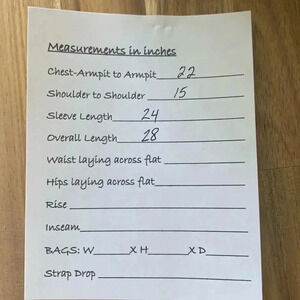 Measurements in inches
Chest-Armpit to Armpit 22
Shoulder to Shoulder 15
Sleeve Length 24
Overall Length 28
Waist laying across flat
Hips laying across flat
Rise
Inseam
BAGS: W X H X D
Strap Drop